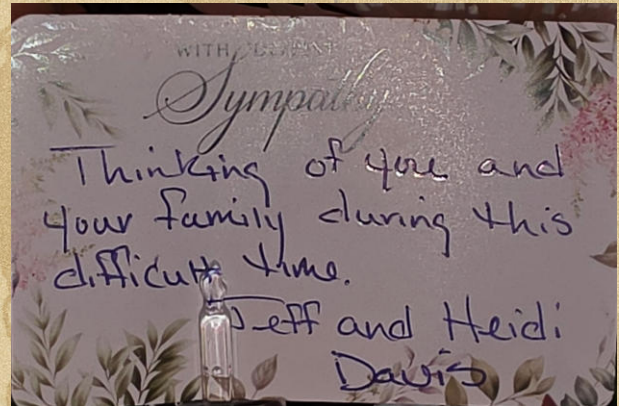 WITH DEEPEST
Sympathy
Thinking of you and
your family during this
difficult time.
Jeff and Heidi
Davis